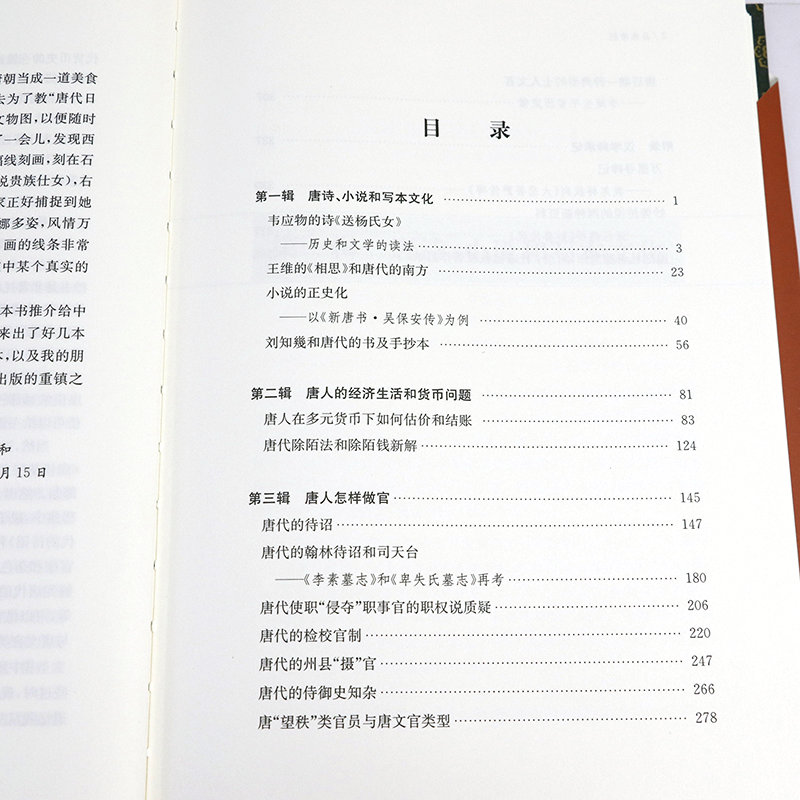 唐朝当成一道美食
去为了教“唐代日
文物图,以便随时
了一会儿,发现西
离线刻画,刻在石
说贵族仕女),右
家正好捕捉到她
娜多姿,风情万
画的线条非常
中某个真实的
本书推介给中
来出了好几本
本,以及我的朋
出版的重镇之
和
月 15 日
目 录
第一辑 唐诗、小说和写本文化 1
韦应物的诗《送杨氏女》
——历史和文学的读法 3
王维的《相思》和唐代的南方 23
小说的正史化
——以《新唐书·吴保安传》为例 40
刘知幾和唐代的书及手抄本 56
第二辑 唐人的经济生活和货币问题 81
唐人在多元货币下如何估价和结账 83
唐代除陌法和除陌钱新解 124
第三辑 唐人怎样做官 145
唐代的待诏 147
唐代的翰林待诏和司天台
——《李素墓志》和《卑失氏墓志》再考 180
唐代使职“侵夺”职事官的职权说质疑 206
唐代的检校官制 220
唐代的州县“摄”官 247
唐代的侍御史知杂 266
唐“望秩”类官员与唐文官类型 278